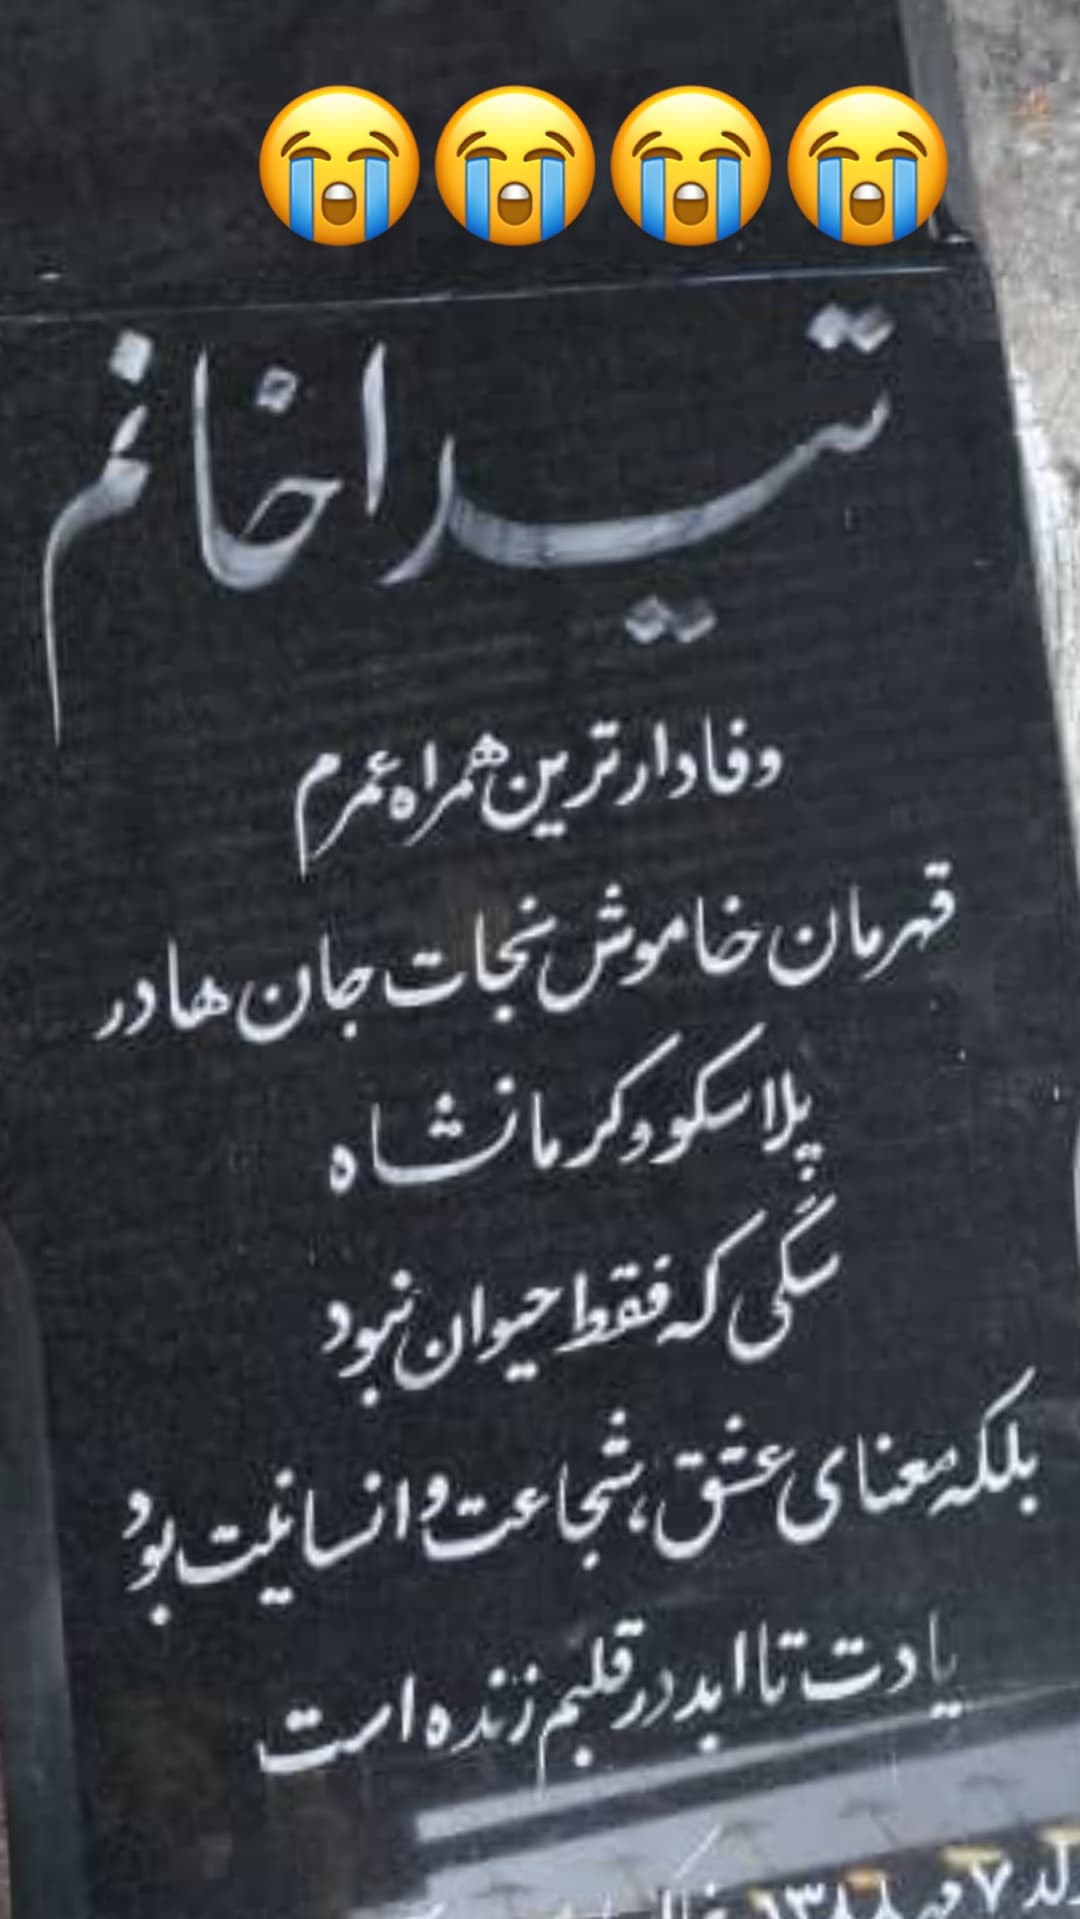 تیدا خانم
وفادارترین همراه عمرم
قهرمان خاموش نجات جان ها در
پلاسکو و کرمانشاه
سگی که فقط حیوان نبود
بلکه معنای عشق، شجاعت و انسانیت بود
یادت تا ابد در قلبم زنده است
۷ مهر